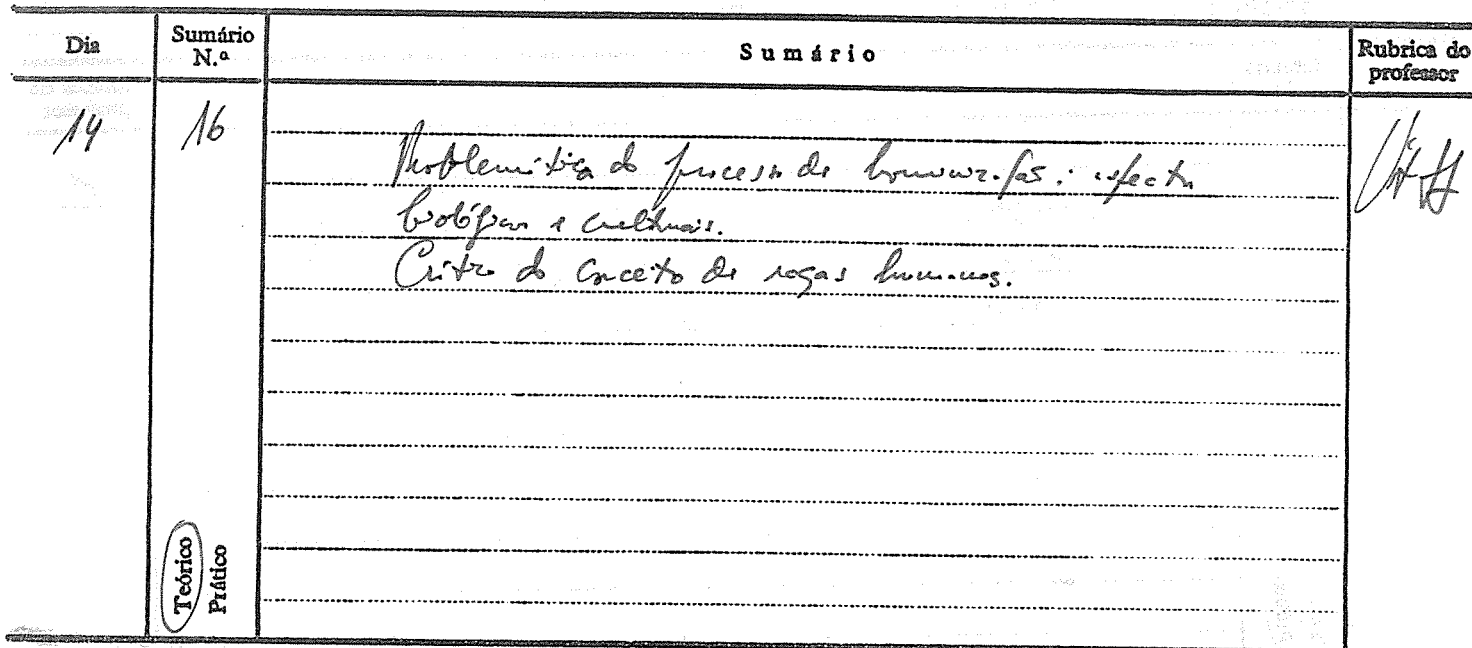 Dia
Sumário N.º
Sumário
Rubrica do professor
14
16
Problemática do processo de hominização: aspectos
biológicos e culturais.
Crítica do conceito de raças humanas.
Teórico
Prático